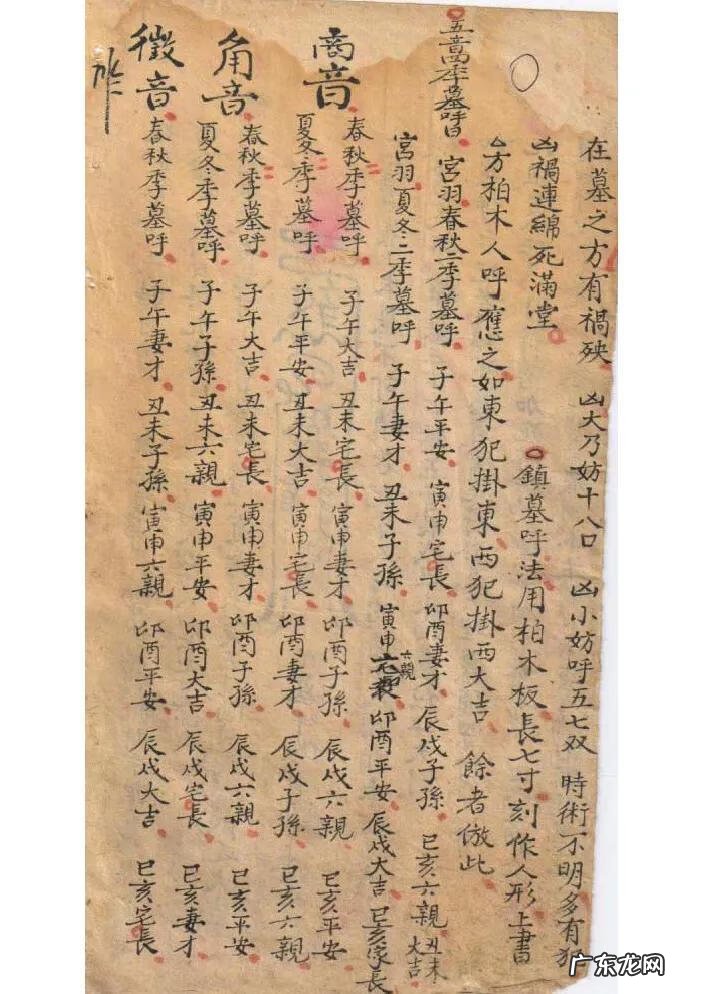 在墓之方有禍殃 凶大乃妨十八口 凶小妨呼五七双 時術不明多有犯
凶禍連綿死滿堂 鎮墓呼法用柏木板長七寸刻作人形上書
方柏木人呼應之如東犯掛東西犯掛西大吉 餘者倣此
五音四季墓呼日 宮羽春秋二季墓呼 子午平安 寅申宅長 卯酉妻才 辰戌子孫 巳亥六親 丑未大吉
宮羽夏冬二季墓呼 子午妻才 丑未子孫 寅申六親 卯酉平安 辰戌大吉 巳亥家長
商音 春秋季墓呼 子午大吉 丑未宅長 寅申妻才 卯酉子孫 辰戌六親 巳亥平安
夏冬季墓呼 子午平安 丑未大吉 寅申宅長 卯酉妻才 辰戌子孫 巳亥六親
角音 春秋季墓呼 子午大吉 丑未宅長 寅申妻才 卯酉子孫 辰戌六親 巳亥平安
夏冬季墓呼 子午子孫 丑未六親 寅申平安 卯酉大吉 辰戌宅長 巳亥妻才
徵音 春秋季墓呼 子午妻才 丑未子孫 寅申六親 卯酉平安 辰戌大吉 巳亥宅長
广东龙网